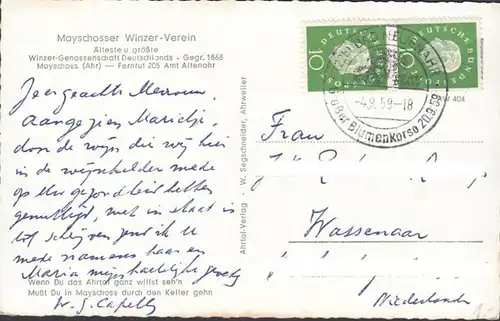 Mayschosser Winzer-Verein
Älteste u. größte
Winzer-Genossenschaft Deutschlands - Gegr. 1868
Mayschoss (Ahr) — Fernruf 205 Amt Altenahr
Zeer geachte Mevrouw,
Aangezien Marietje,
door de wijn die wij hier
in de wijnkelder mede
op Uw gezondheid hebben
genuttigd, niet in staat is
tot schrijven zend ik U
mede namens haar en
Maria mijn hartelijke groeten
Wenn Du das Ahrtal ganz willst seh'n
Mußt Du in Mayschoss durch den Keller gehn
W. J. Capelle
Ahrtal-Verlag - W. Segschneider, Ahrweiler
10 DEUTSCHE BUNDESPOST
DEUTSCHE BUNDESPOST
-4.9.59-18
Großer Blumenkorso 20.9.59
404
Frau
Wassenaar
Niederlande